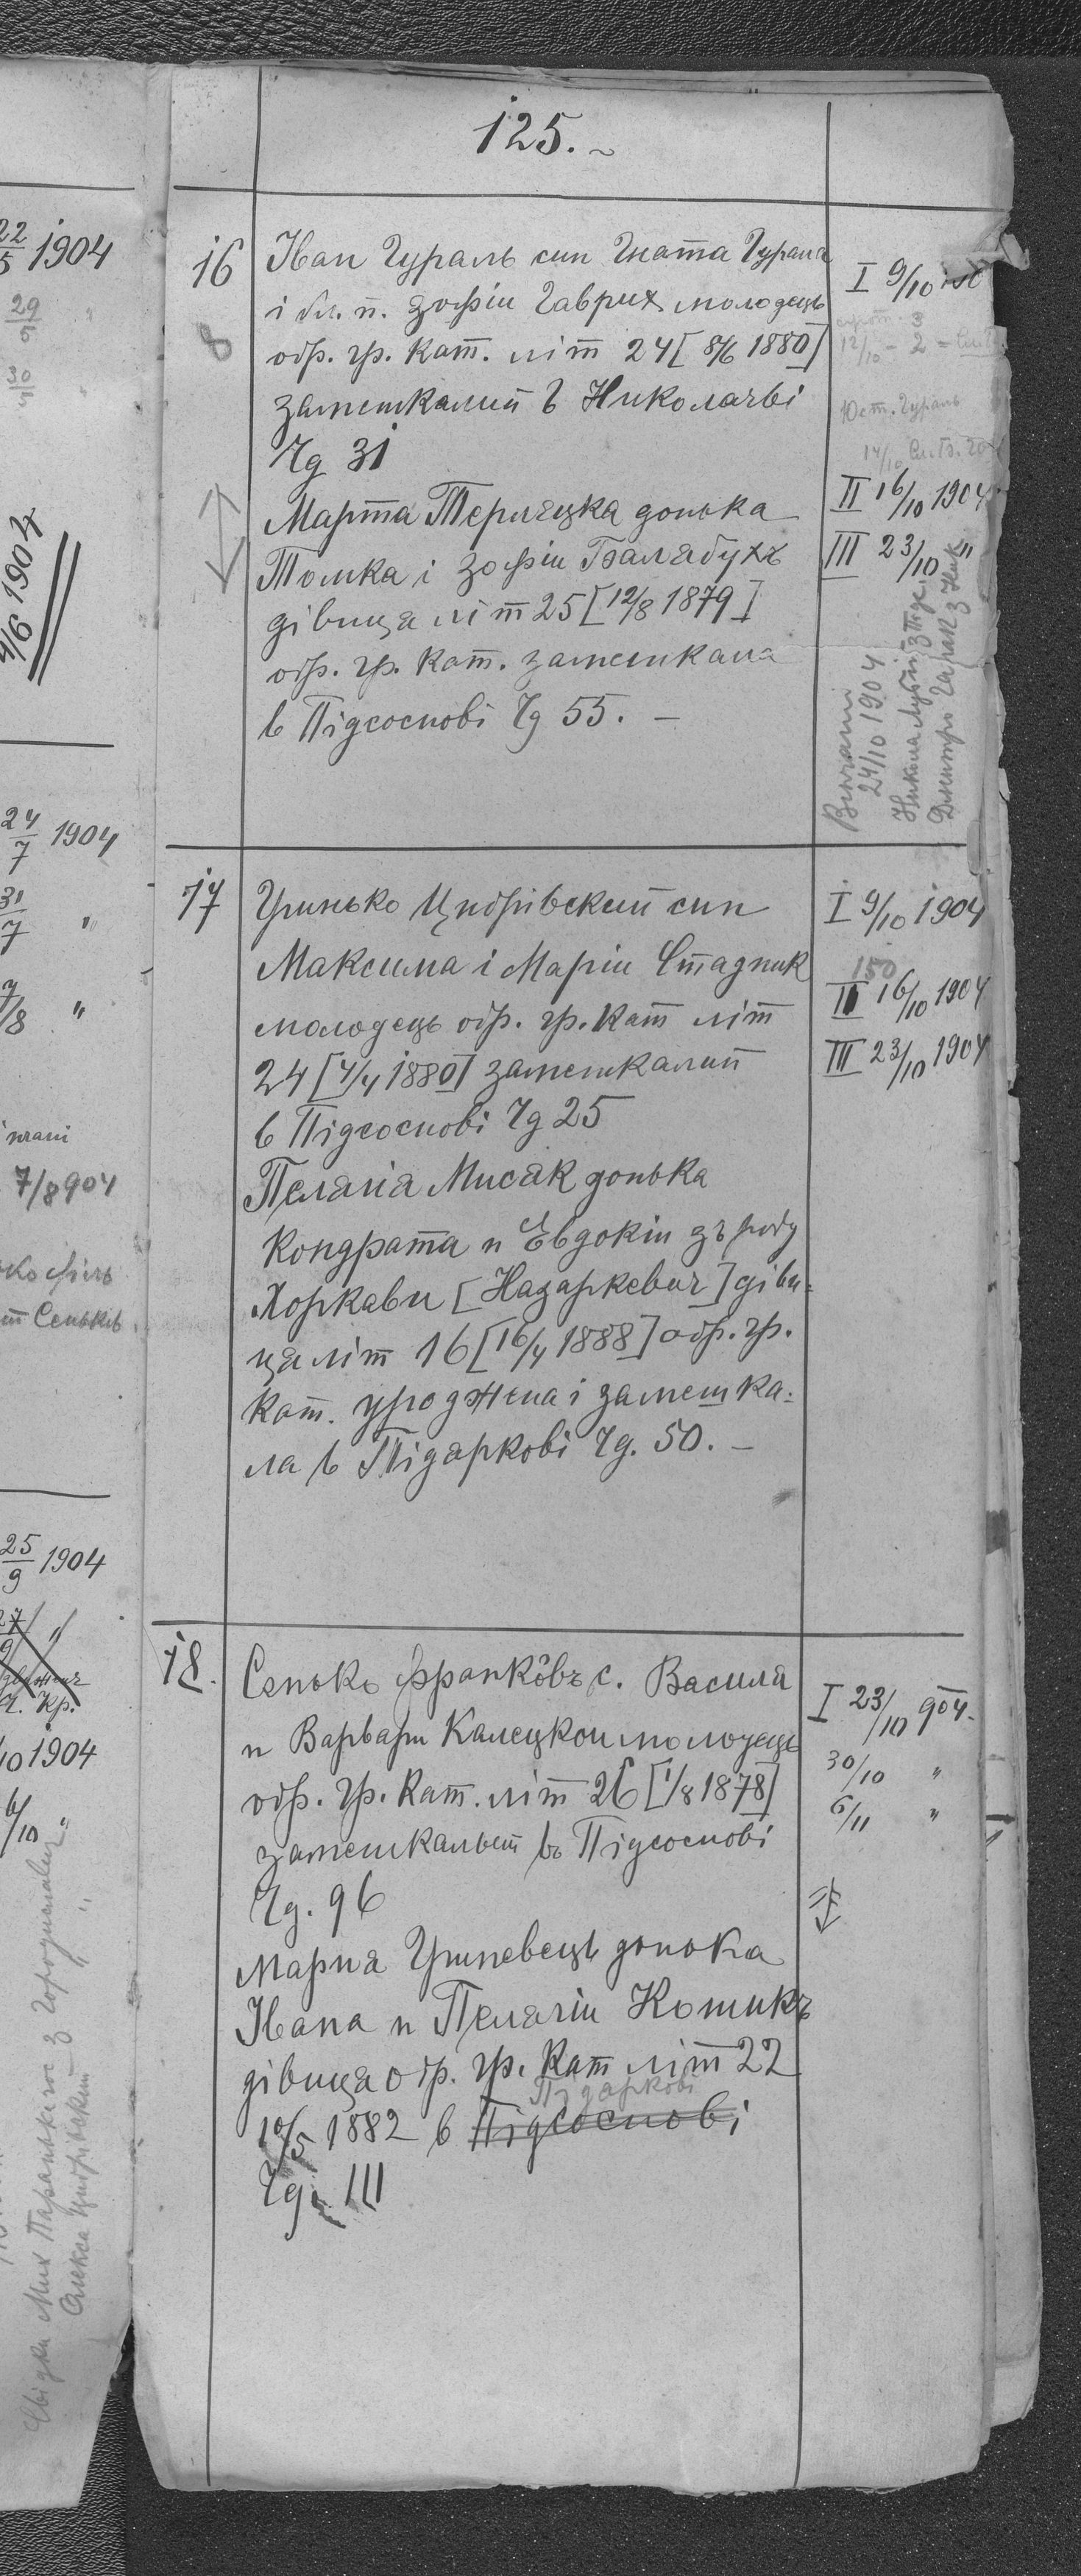 125.
16
Іван Гураль син Гната Гураля
і бл. п. Зофіи Гаврих молодець
обр. гр. кат. літ 24 [8/6 1880]
замешкалий в Николаєві
Чд 31
Марта Терлецка донька
Томка і Зофіи Балабухъ
дівиця літ 25 [12/8 1879]
обр. гр. кат. замешкала
в Підсоснові Чд 55. —
8
I 9/10
12/10 - 2 =
Юст. Гураль
14/10
II 16/10 1904
III 23/10 "
Вінчані
24/10 1904
Никола
Дмитро
17
Гринько Цибрівский син
Максима і Маріи Стадник
молодець обр. гр. кат літ
24 [4/4 1880] замешкалий
в Підсоснові Чд 25
Пелагія Мисак донька
Кондрата и Евдокіи зъ роду
Хоркави [Назаркевич] діви-
ця літ 16 [16/4 1888] обр. гр.
кат. уроджена і замешка-
ла в Підяркові Чд. 50. —
I 9/10 1904
150
II 16/10 1904
III 23/10 1904
18.
Сенько Франкôвъ с. Василя
и Варвары Калецкои молодець
обр. гр. кат. літ 26 [1/8 1878]
замешкалый въ Підсоснові
Чд. 96
Мария Гриневець донька
Ивана и Пелагіи Кошикъ
дівиця обр. гр. кат літ 22
Підяркові
10/5 1882 в Підсоснові
Чд. 111
I 23/10 904.
30/10 "
6/11 "
22/5 1904
29/5 "
30/5 "
4/6 1904
24/7 1904
31/7 "
7/8 "
7/8 904
Сеньків
25/9 1904
27/9 "
Ч. Кр.
/10 1904
6/10 "
Свідки Мих
Олекса Цибрівский